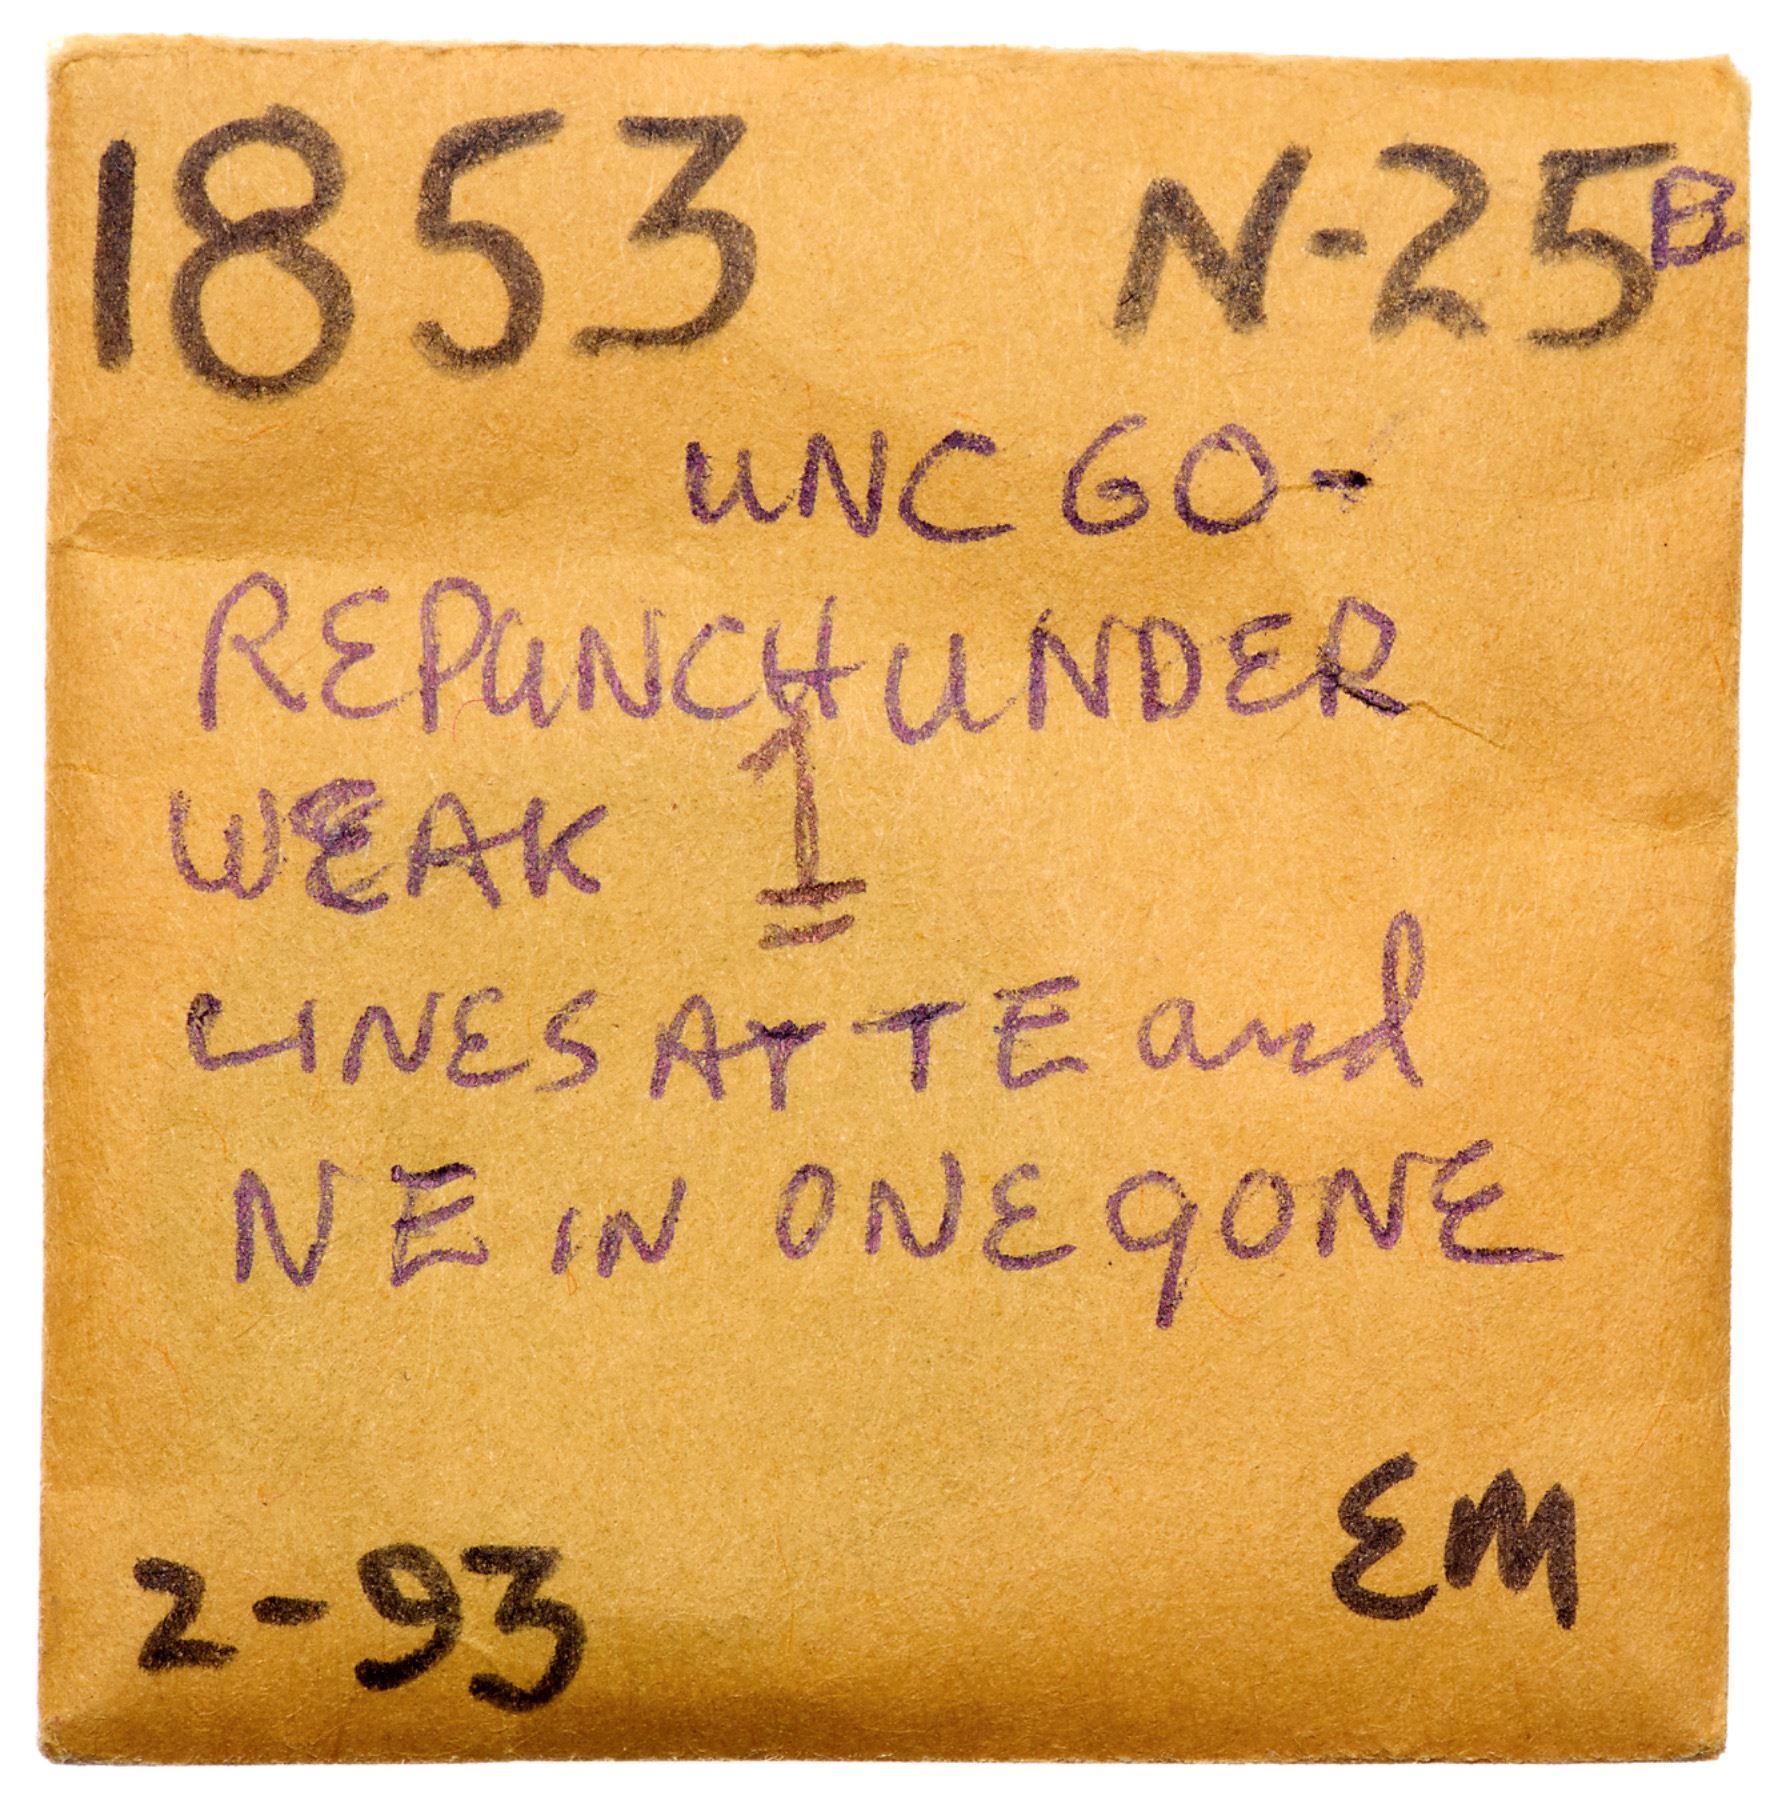 1853 N-25B
UNC 60-
REPUNCH UNDER
WEAK 1
LINES AT TE and
NE IN ONE GONE
2-93 EM